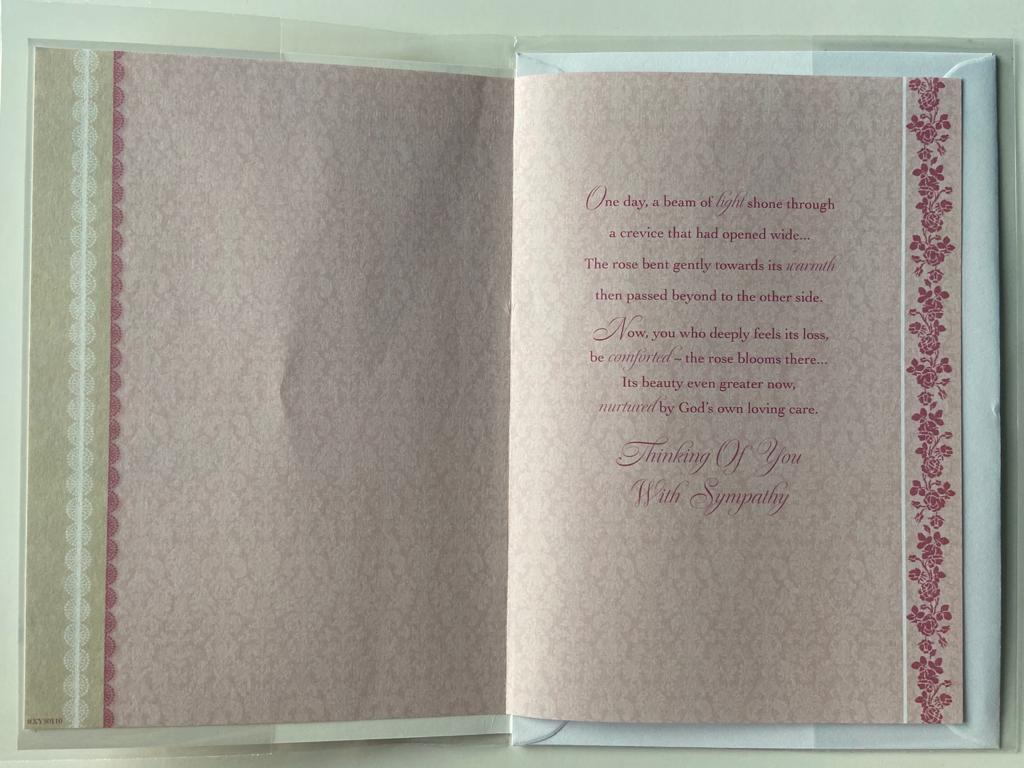 One day, a beam of light shone through
a crevice that had opened wide...
The rose bent gently towards its warmth
then passed beyond to the other side.
Now, you who deeply feels its loss,
be comforted – the rose blooms there...
Its beauty even greater now,
nurtured by God's own loving care.
Thinking Of You
With Sympathy